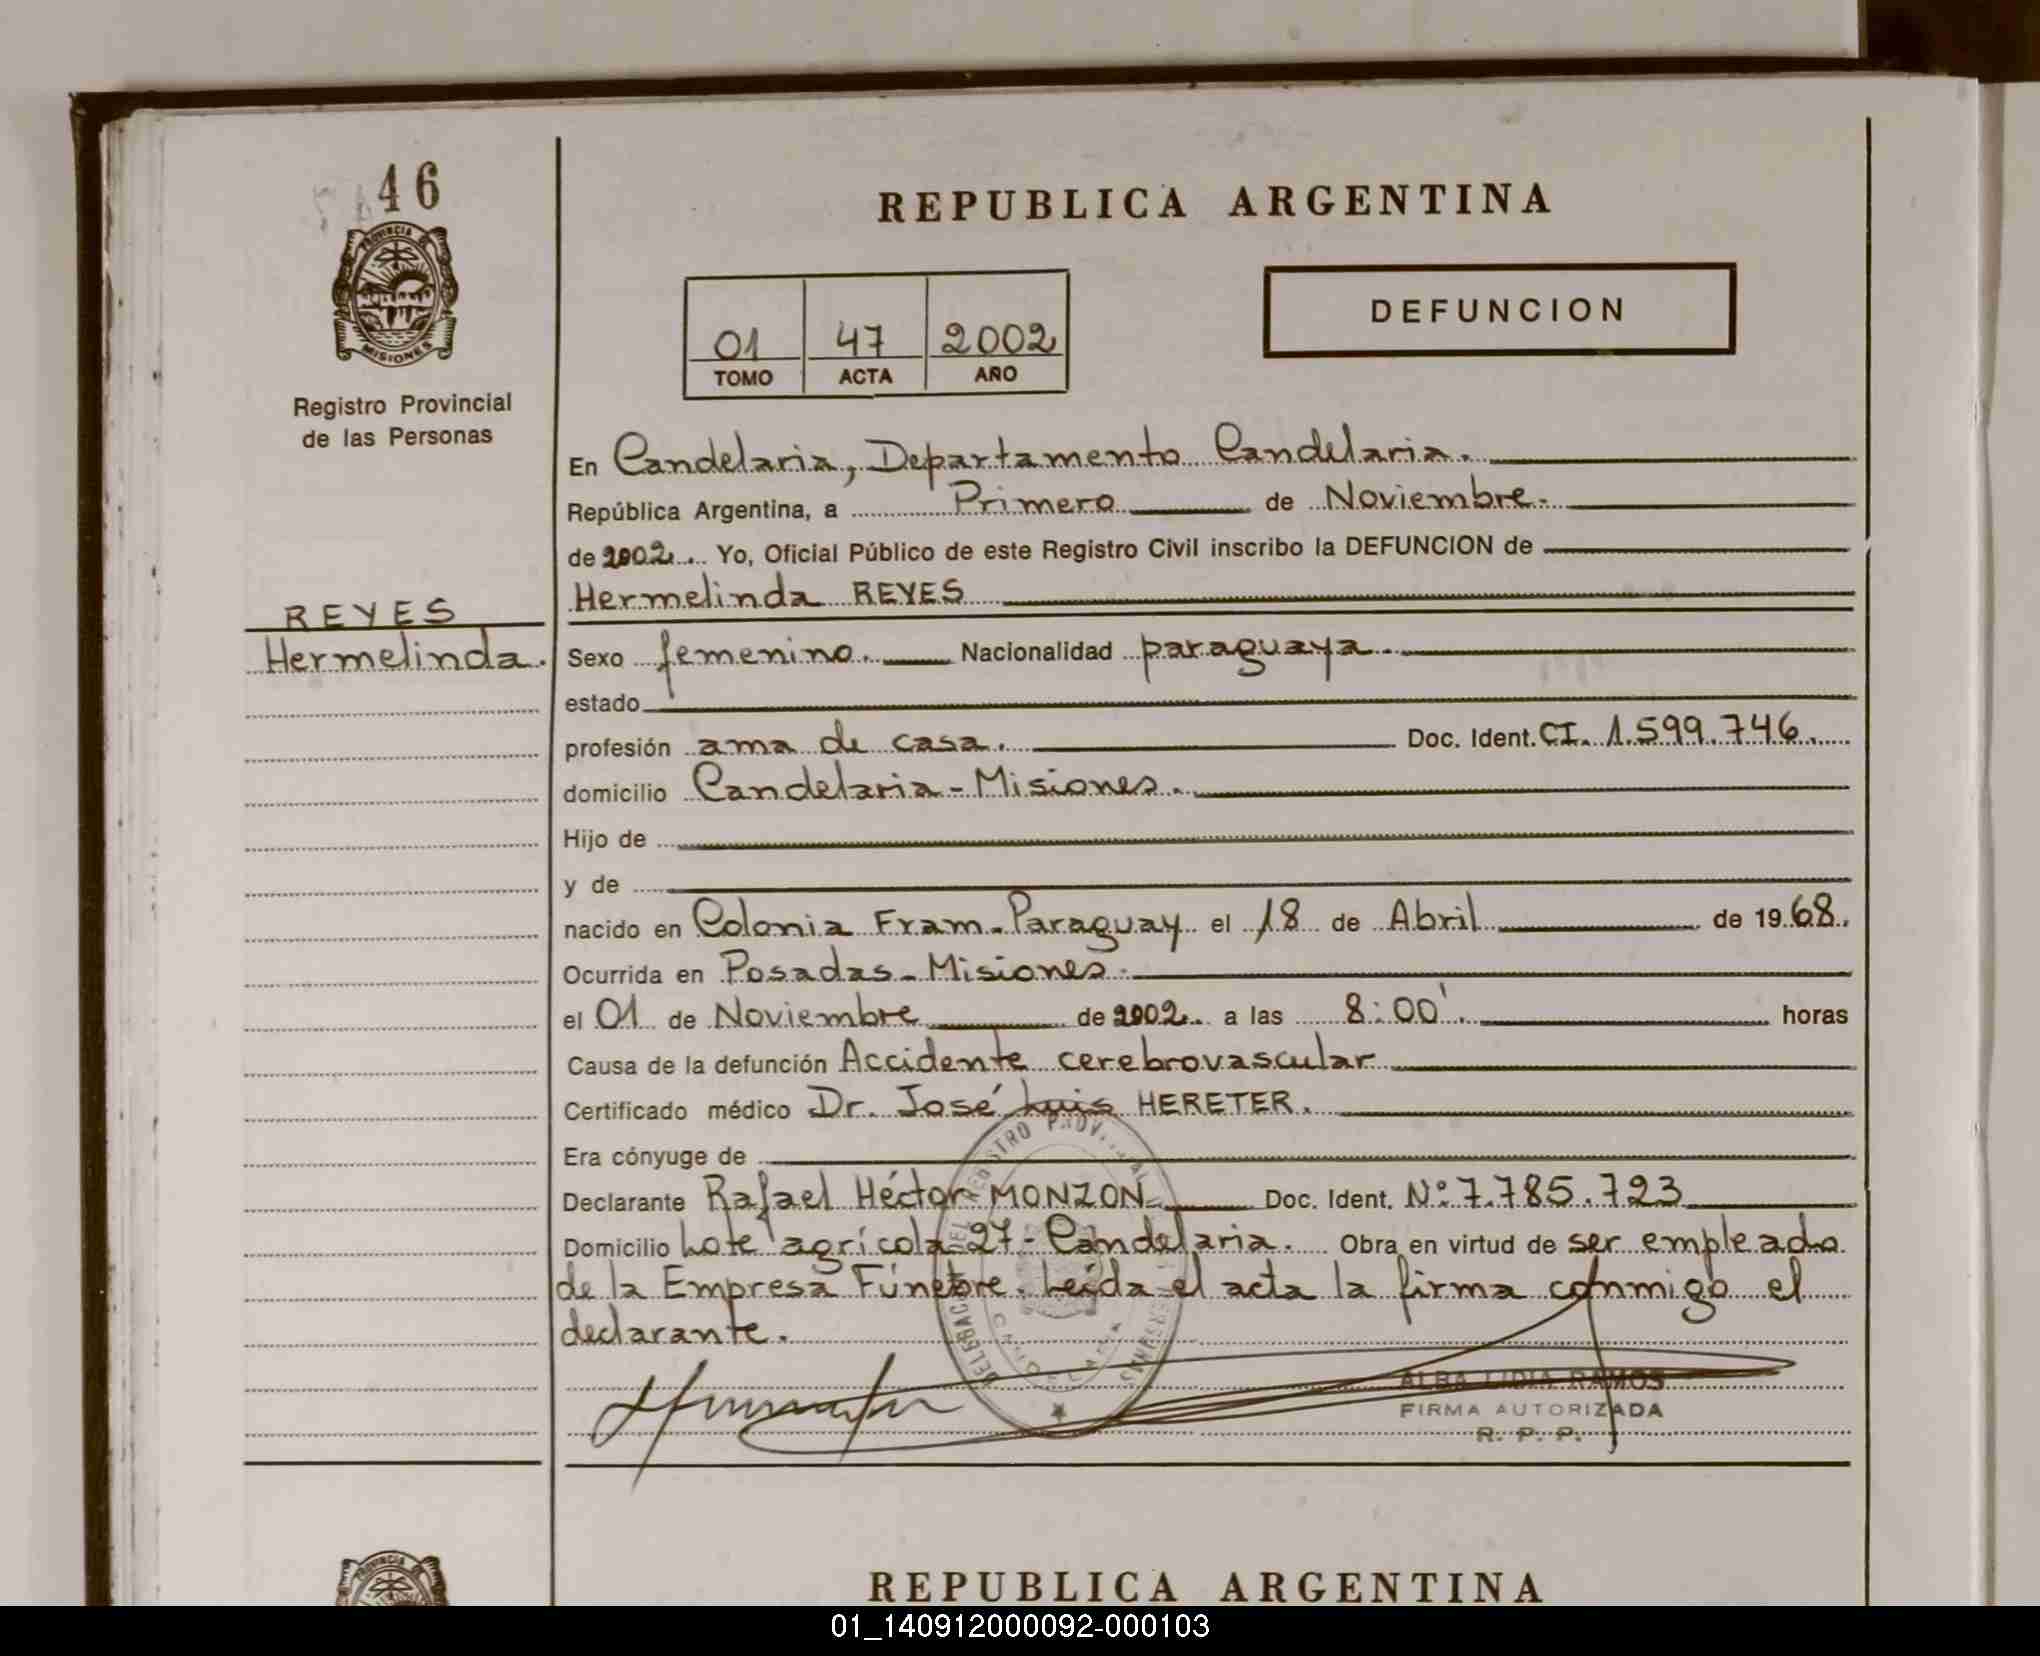 46
PROVINCIA DE
MISIONES
Registro Provincial
de las Personas
REYES
Hermelinda.
REPUBLICA ARGENTINA
01 47 2002
TOMO ACTA AÑO
DEFUNCION
En Candelaria, Departamento Candelaria.
República Argentina, a Primero de Noviembre.
de 2002. Yo, Oficial Público de este Registro Civil inscribo la DEFUNCION de
Hermelinda REYES
Sexo femenino. Nacionalidad paraguaya.
estado
profesión ama de casa. Doc. Ident. CI. 1.599.746.
domicilio Candelaria - Misiones.
Hijo de
y de
nacido en Colonia Fram - Paraguay el 18 de Abril de 1968.
Ocurrida en Posadas - Misiones.
el 01 de Noviembre de 2002. a las 8:00'. horas
Causa de la defunción Accidente cerebrovascular
Certificado médico Dr. José Luis HERETER.
Era cónyuge de
Declarante Rafael Héctor MONZON Doc. Ident. Nº 7.785.723
Domicilio Lote agrícola 27 - Candelaria. Obra en virtud de ser empleado
de la Empresa Fúnebre. Leída el acta la firma conmigo el
declarante.
ALBA LIDIA RAMOS
FIRMA AUTORIZADA
R. P. P.
REPUBLICA ARGENTINA
01_140912000092-000103